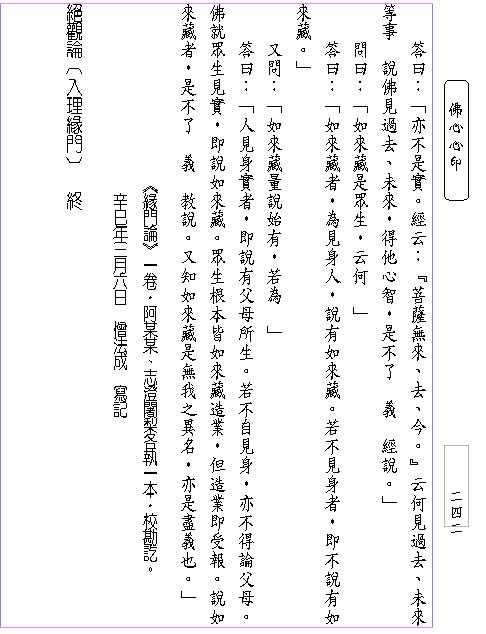 佛心心印
二四二
答曰：「亦不是實。經云：『菩薩無來、去、今。』云何見過去、未來
等事　說佛見過去、未來，得他心智，是不了　義　經說。」
問曰：「如來藏是眾生，云何　」
答曰：「如來藏者，為見身人，說有如來藏。若不見身者，即不說有如
來藏。」
又問：「如來藏量說始有，若為　」
答曰：「人見身實者，即說有父母所生。若不自見身，亦不得論父母。
佛就眾生見實，即說如來藏。眾生根本皆如來藏造業，但造業即受報。說如
來藏者，是不了　義　教說。又知如來藏是無我之異名，亦是盡義也。」
《緣門論》一卷，阿某某、志澄闍梨各執一本，校勘訖。
辛巳年三月六日　憎法成　寫記
絕觀論（入理緣門）　終